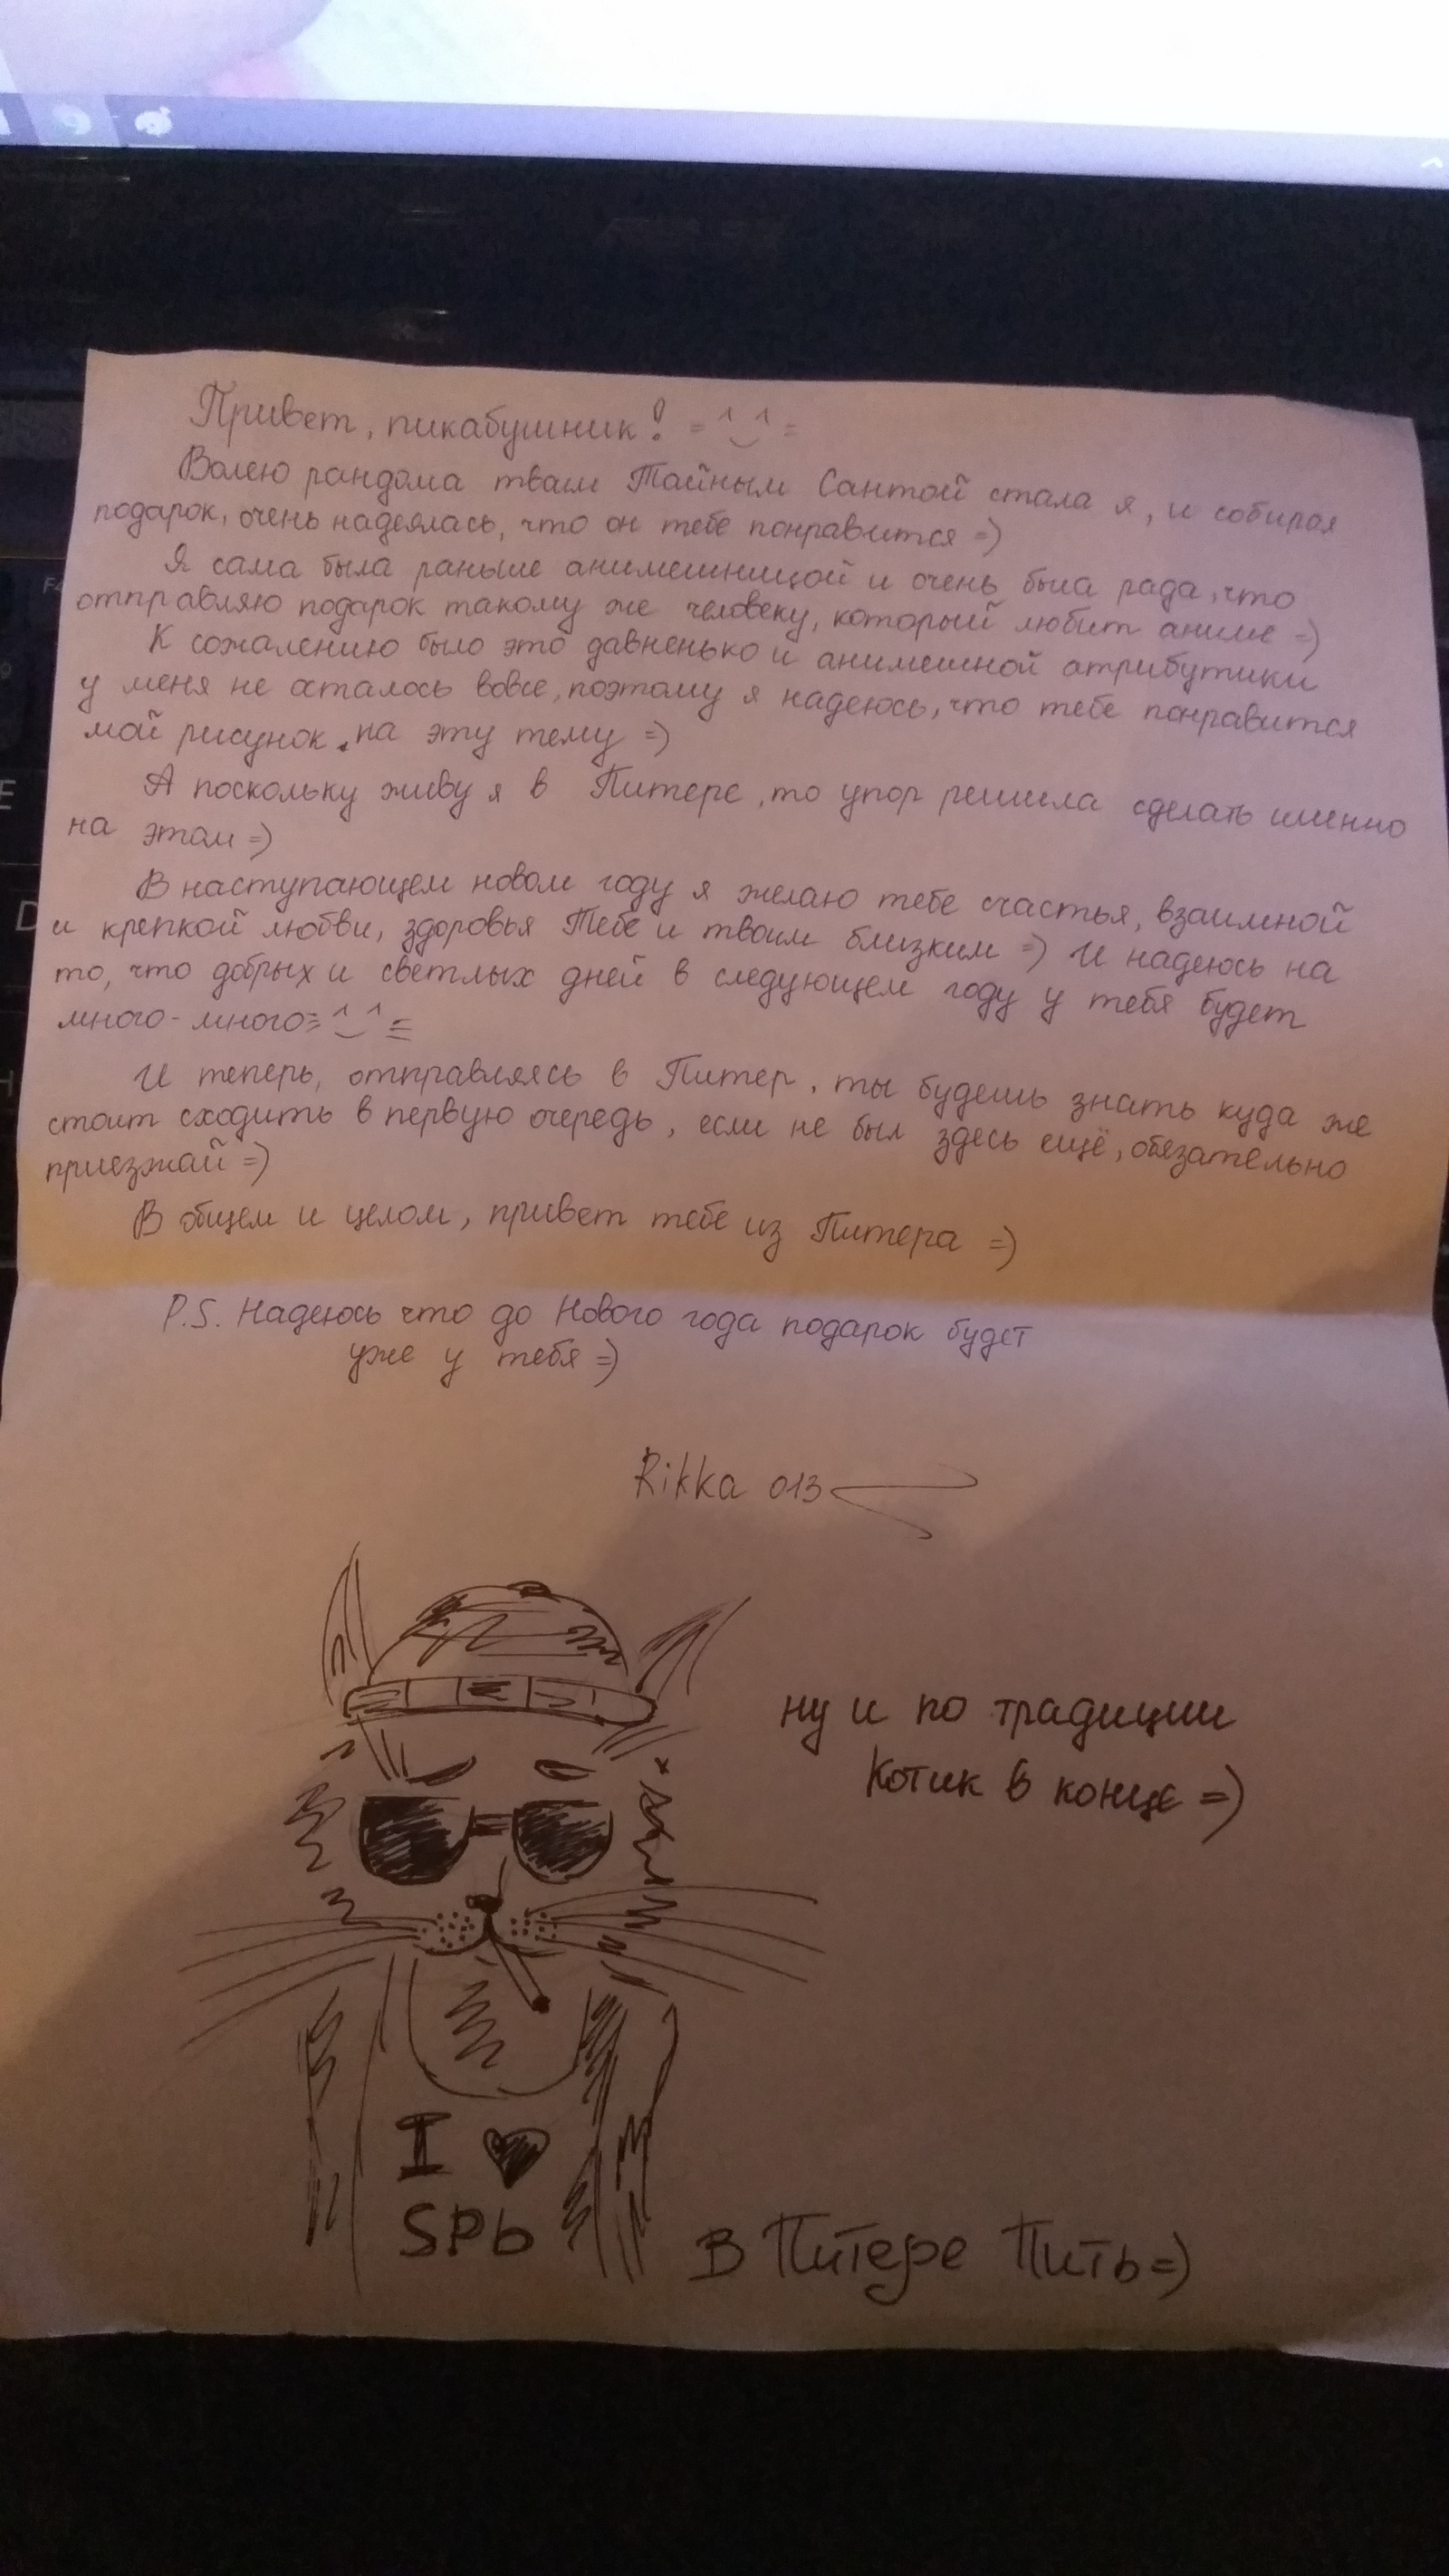 Привет, пикабушник! =^‿^=
Волею рандома твоим Тайным Сантой стала я, и собирая
подарок, очень надеялась, что он тебе понравится =)
Я сама была раньше анимешницой и очень была рада, что
отправляю подарок такому же человеку, который любит аниме =)
К сожалению было это давненько и анимешной атрибутики
у меня не осталось вовсе, поэтому я надеюсь, что тебе понравится
мой рисунок на эту тему =)
А поскольку живу я в Питере, то упор решила сделать именно
на этом =)
В наступающем новом году я желаю тебе счастья, взаимной
и крепкой любви, здоровья Тебе и твоим близким =) И надеюсь на
то, что добрых и светлых дней в следующем году у тебя будет
много-много =^‿^=
И теперь, отправляясь в Питер, ты будешь знать куда же
стоит сходить в первую очередь, если не был здесь ещё, обязательно
приезжай =)
В общем и целом, привет тебе из Питера =)
P.S. Надеюсь что до Нового года подарок будет
уже у тебя =)
Rikka 013
ну и по традиции
Котик в конце =)
I ♥
SPb
В Питере Пить =)